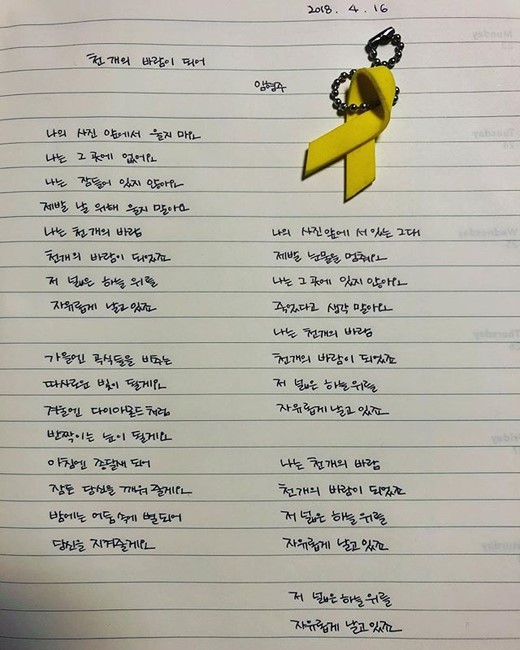 2018. 4. 16
천 개의 바람이 되어
임형주
나의 사진 앞에서 울지 마요
나는 그 곳에 없어요
나는 잠들어 있지 않아요
제발 날 위해 울지 말아요
나는 천 개의 바람
천개의 바람이 되었죠
저 넓은 하늘 위를
자유롭게 날고 있죠
가을엔 곡식들을 비추는
따사로운 빛이 될게요
겨울엔 다이아몬드처럼
반짝이는 눈이 될게요
아침엔 종달새 되어
잠든 당신을 깨워 줄게요
밤에는 어둠 속에 별 되어
당신을 지켜줄게요
나의 사진 앞에 서 있는 그대
제발 눈물을 멈춰요
나는 그 곳에 있지 않아요
죽었다고 생각 말아요
나는 천개의 바람
천개의 바람이 되었죠
저 넓은 하늘 위를
자유롭게 날고 있죠
나는 천 개의 바람
천 개의 바람이 되었죠
저 넓은 하늘 위를
자유롭게 날고 있죠
저 넓은 하늘 위를
자유롭게 날고 있죠